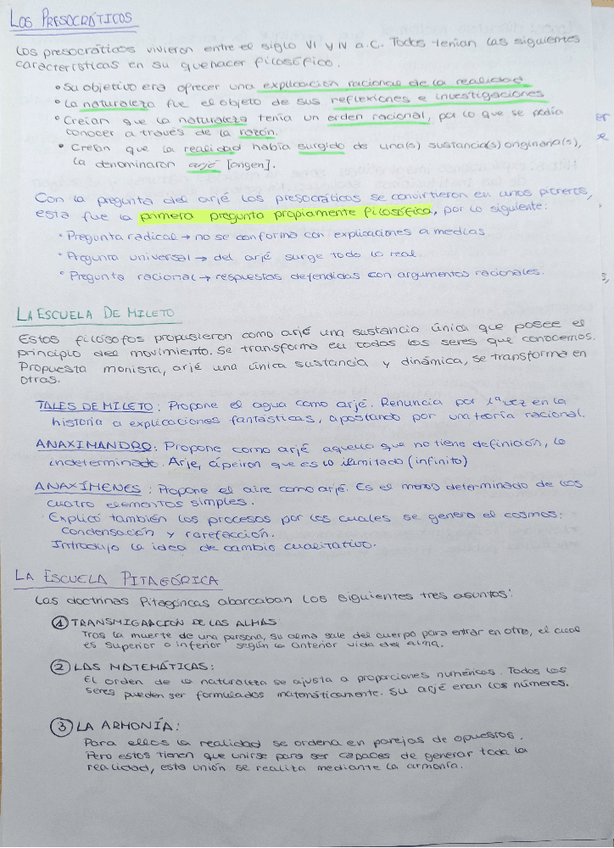 LOS PRESOCRÁTICOS
Los presocráticos vivieron entre el siglo VI y IV a.C. Todos tenían las siguientes
características en su quehacer filosófico.
• Su objetivo era ofrecer una explicación racional de la realidad
• La naturaleza fue el objeto de sus reflexiones e investigaciones
• Creían que la naturaleza tenía un orden racional, por lo que se podía
conocer a través de la razón.
• Creían que la realidad había surgido de una(s) sustancia(s) originaria(s),
la denominaron arjé [origen].
Con la pregunta del arjé los presocráticos se convirtieron en unos pioneros,
esta fue la primera pregunta propiamente filosófica, por lo siguiente:
• Pregunta radical → no se conforma con explicaciones a medias.
• Pregunta universal → del arjé surge todo lo real.
• Pregunta racional → respuestas defendidas con argumentos racionales.
LA ESCUELA DE MILETO
Estos filósofos propusieron como arjé una sustancia única que posee el
principio del movimiento. Se transforma en todos los seres que conocemos.
Propuesta monista, arjé una única sustancia y dinámica, se transforma en
otras.
TALES DE MILETO: Propone el agua como arjé. Renuncia por 1ª vez en la
historia a explicaciones fantásticas, apostando por una teoría racional.
ANAXIMANDRO: Propone como arjé aquello que no tiene definición, lo
indeterminado. Arjé, ápeiron que es lo ilimitado (infinito)
ANAXÍMENES: Propone el aire como arjé. Es el menos determinado de los
cuatro elementos simples.
Explicó también los procesos por los cuales se genera el cosmos:
condensación y rarefacción.
Introdujo la idea de cambio cualitativo.
LA ESCUELA PITAGÓRICA
Las doctrinas Pitagóricas abarcaban los siguientes tres asuntos:
① TRANSMIGRACIÓN DE LAS ALMAS
Tras la muerte de una persona, su alma sale del cuerpo para entrar en otro, el cual
es superior o inferior según la anterior vida del alma.
② LAS MATEMÁTICAS:
El orden de la naturaleza se ajusta a proporciones numéricas. Todos los
seres pueden ser formulados matemáticamente. Su arjé eran los números.
③ LA ARMONÍA:
Para ellos la realidad se ordena en parejas de opuestos.
Pero estos tienen que unirse para ser capaces de generar toda la
realidad, esta unión se realiza mediante la armonía.